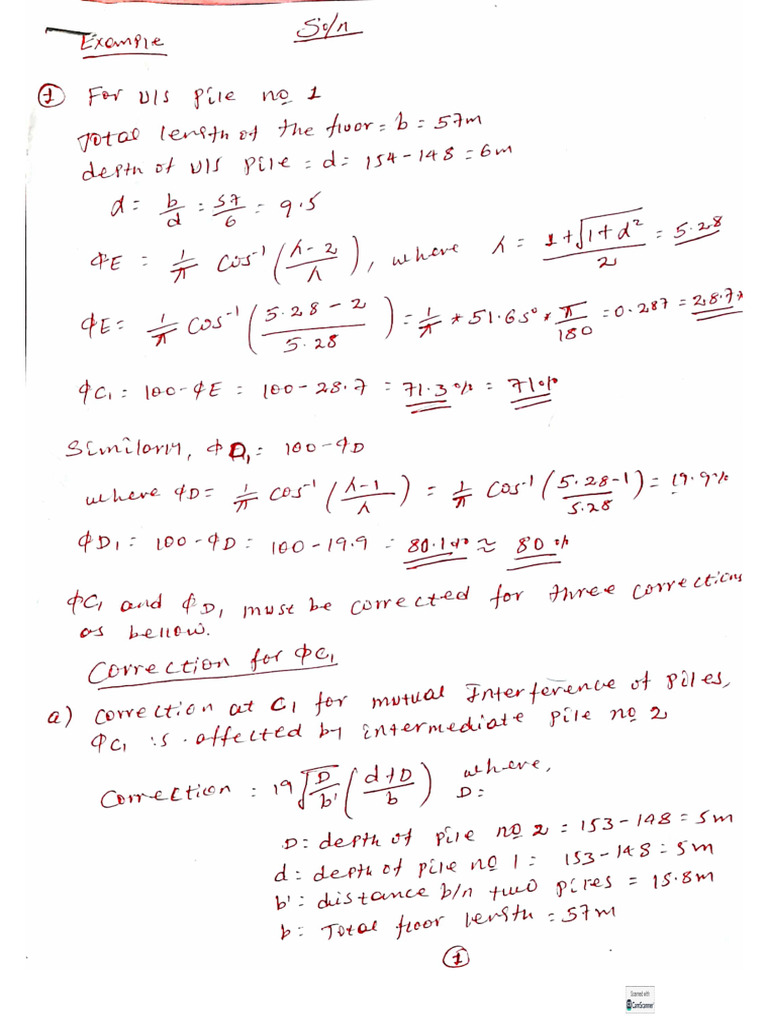 Example Soln
① For U/S pile no 1
Total length of the floor = b = 57m
depth of U/S pile = d = 154-148 = 6m
d = b/d = 57/6 = 9.5
φE = 1/π cos⁻¹ (λ-2/λ), where λ = 1+√(1+d²)/2 = 5.28
φE = 1/π cos⁻¹ (5.28-2/5.28) = 1/π * 51.65° * π/180 = 0.287 = 28.7%
φC₁ = 100-φE = 100-28.7 = 71.3% = 71%
Similarly, φD₁ = 100-φD
where φD = 1/π cos⁻¹ (λ-1/λ) = 1/π cos⁻¹ (5.28-1/5.28) = 19.9%
φD₁ = 100-φD = 100-19.9 = 80.1% ≈ 80%
φC₁ and φD₁ must be corrected for three corrections
as bellow.
Correction for φC₁
a) correction at C₁ for mutual Interference of piles,
φC₁ is affected by intermediate pile no 2
Correction = 19√(D/b') (d+D/b) where,
D=
D = depth of pile no 2 = 153-148 = 5m
d = depth of pile no 1 = 153-148 = 5m
b' = distance b/n two piles = 15.8m
b = Total floor length = 57m
①
Scanned with
CamScanner